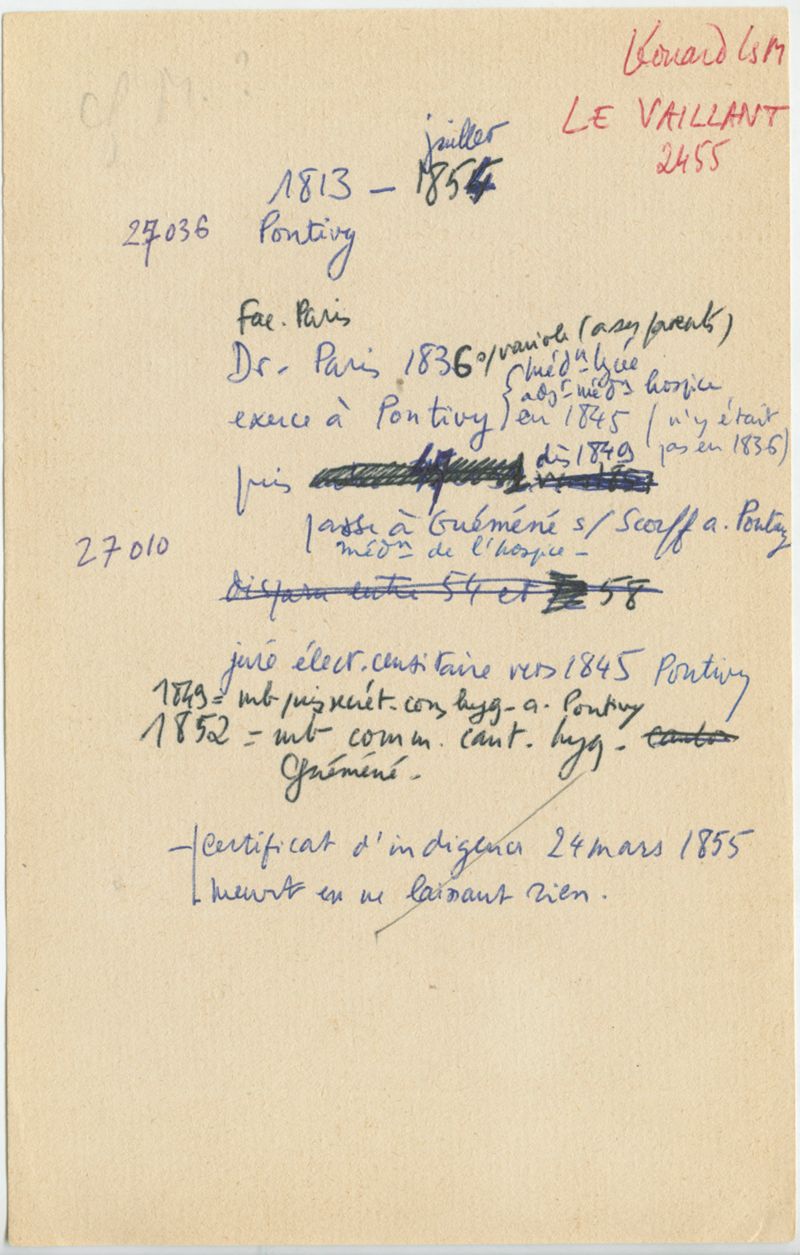 Cf M. ?
Léonard Ls M
LE VAILLANT
2455
juillet
1813 - 1854
27036 Pontivy
Fac. Paris
Dr. Paris 1836 s/ variole (à ses parents)
médn lycée
adjt médn hospice
exerce à Pontivy en 1845 (n'y était
pas en 1836)
dès 1849
puis
passe à Guéméné s/ Scorff a. Pontivy
27010
médn de l'hospice -
disparu entre 54 et 58
juré élect. censitaire vers 1845 Pontivy
1849 = mb puis secrét. cons hyg - a. Pontivy
1852 = mb comm. cant. hyg. canton
Guéméné.
- certificat d'indigence 24 mars 1855
meurt en ne laissant rien.